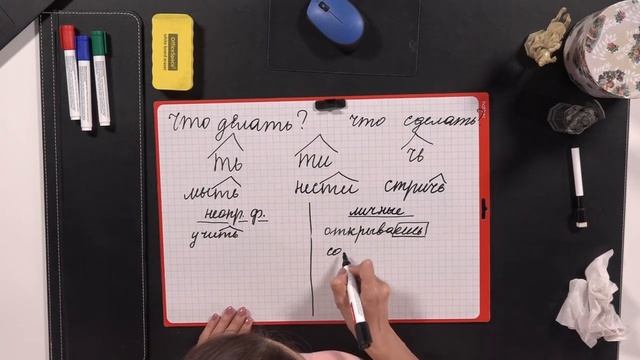 OfficeSpace
Что делать? что сделать
ть ти чь
мыть нести стричь
неопр. ф. личные
учить открываешь
со